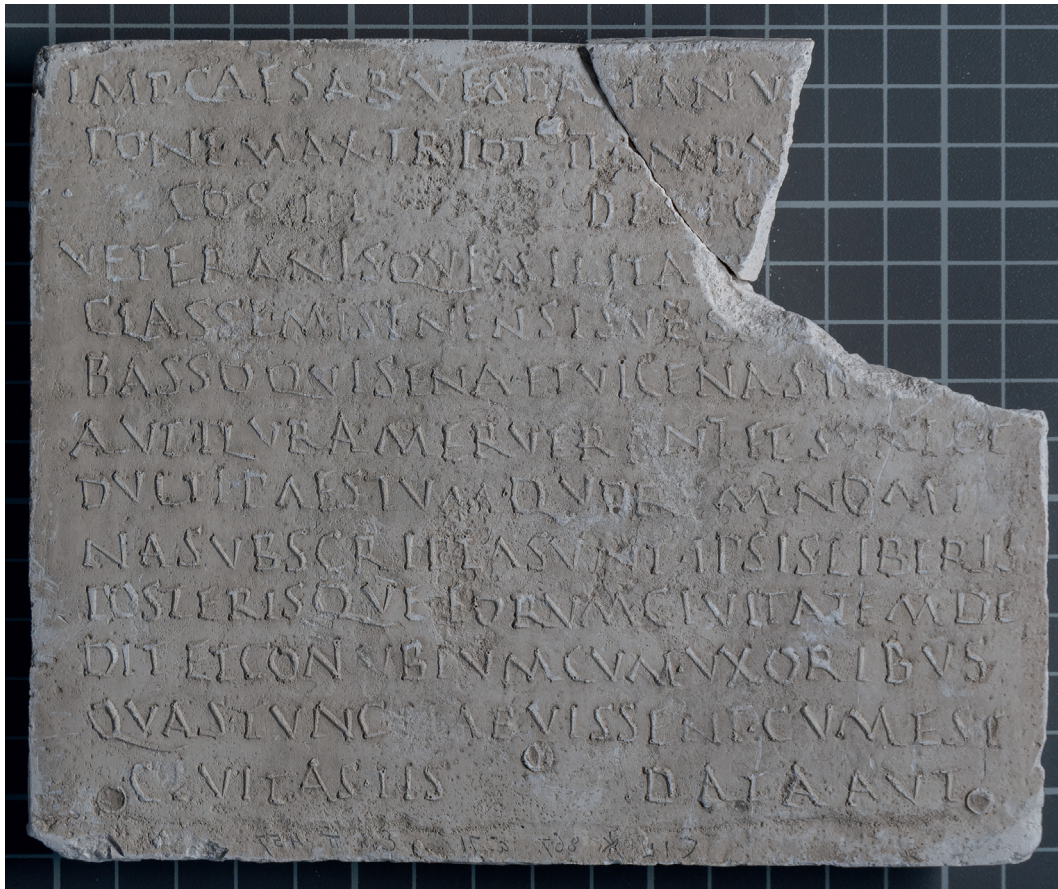 IMP·CAESAR·VESPASIANV
PONT·MAX·TR·POT·II·IMP·
COS·III DESIG
VETERANIS·QVI·MILITA
CLASSE·MISENENSI·SVB·S
BASSO·QVI·SENA·ET·VICENA·STI
AVT·PLVRA·MERVERVNT·ET·SVNT·DE
DVCTI·PAESTVM·QVORVM·NOMI
NA·SVBSCRIPTA·SVNT·IPSIS·LIBERIS
POSTERISQVE·EORVM·CIVITATEM·DE
DIT·ET·CONVBIVM·CVM·VXORIBVS
QVAS·TVNC·HABVISSENT·CVM·EST
CIVITAS·IIS DATA·AVT